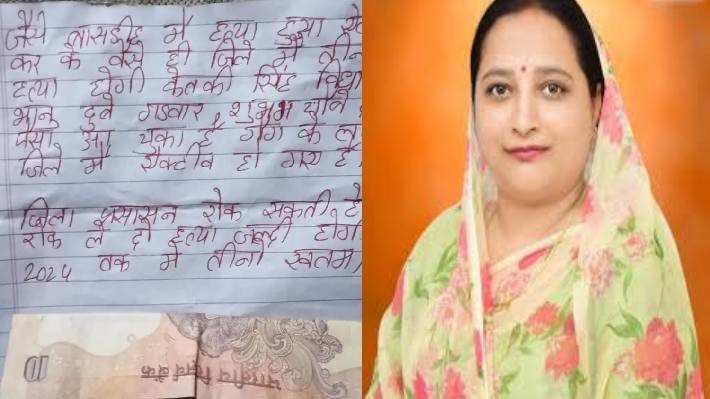 जैसे लासडीह में हत्या हुआ
कर के वैसे ही जिले में तीन
हत्या होगी केतकी सिंह विधा
भानु दुबे गडवार, शुभम चुनि
पैसा आ चुका है गैंग के ल
जिले में एक्टीव हो गए है
जिला प्रसासन रोक सकती है
रोक ले दो हत्या जल्दी होगी
2024 तक मे तीनो खतम
भारतीय रिज़र्व बैंक
10